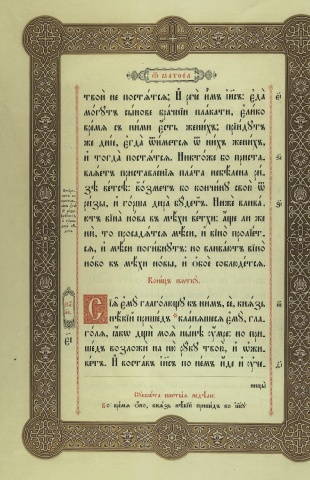 Ѿ матѳеа
твоѝ не постѧ́тсѧ; И҆ речѐ и҆̀мъ і҆и҃съ: є҆да̀
мо́гꙋтъ сы́нове бра́чнїи пла́кати, є҆ли́ко
вре́мѧ съ ни́ми є҆́сть жени́хъ; прїи́дꙋтъ
же дні́е, є҆гда̀ ѿи́метсѧ ѿ ни́хъ жени́хъ,
и҆ тогда̀ постѧ́тсѧ. Никто́же бо приста-
влѧ́етъ приставле́нїѧ пла́та небѣ́лена ри́-
зѣ ве́тсѣ: во́зметъ бо кончи́нꙋ свою̀ ѿ
ри́зы, и҆ го́рша дира̀ бꙋ́детъ. Нижѐ влива́-
ютъ вїна̀ но́ва въ мѣ́хи ве́тхи: а҆́ще ли же
нѝ, то просадѧ́тсѧ мѣ́си, и҆ вїно̀ пролїе́т-
сѧ, и҆ мѣ́си поги́бнꙋтъ: но влива́ютъ вїно̀
но́во въ мѣ́хи но́вы, и҆ ѻ҆́бое соблюде́тсѧ.
Коне́цъ пѧткꙋ̀.
Сїѧ̑ є҆мꙋ̀ глаго́лющꙋ къ ни̑мъ, сѐ, кнѧ́зь
нѣ́кїй прише́дъ кла́нѧшесѧ є҆мꙋ̀, гла-
го́лѧ, ꙗ҆́кѡ дщѝ моѧ̀ ны́нѣ ᲂу҆́мре: но при-
ше́дъ возложѝ на ню̀ рꙋ́кꙋ твою̀, и҆ ѡ҆жи-
ве́тъ. И҆ воста́въ і҆и҃съ по не́мъ и҆́де и҆ ᲂу҆че-
ницы̀
Сꙋббѡ́та шеста́ѧ недѣ́ли:
Во вре́мѧ ѻ҆́но, кнѧ́зь нѣ́кїй прїи́де ко і҆и҃сꙋ